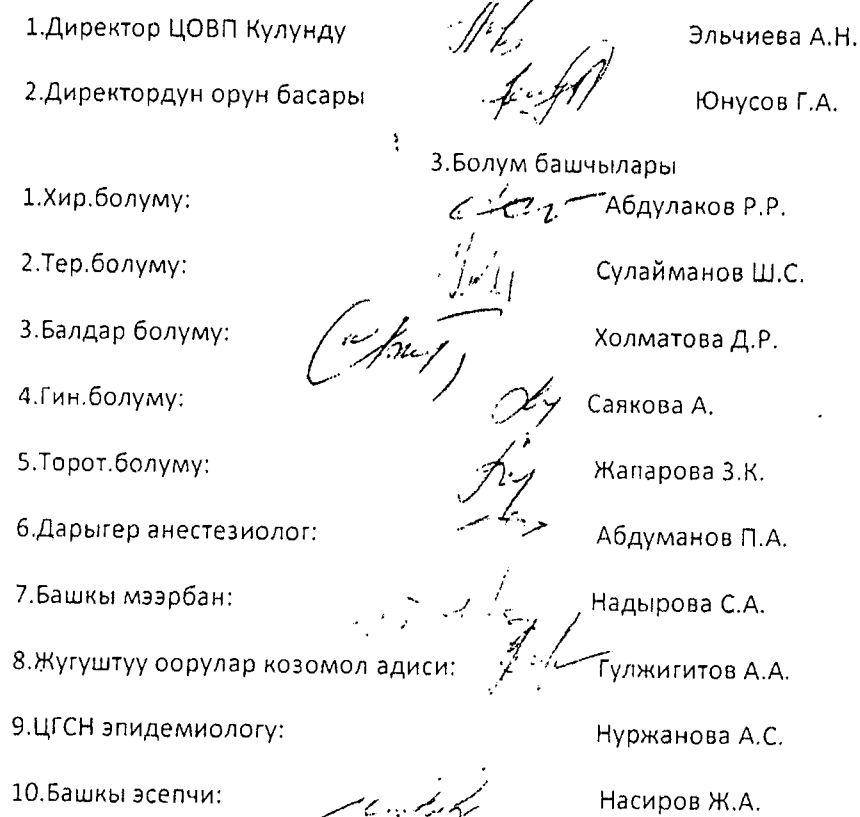 1.Директор ЦОВП Кулунду Эльчиева А.Н.
2.Директордун орун басары Юнусов Г.А.
3.Болум башчылары
1.Хир.болуму: Абдулаков Р.Р.
2.Тер.болуму: Сулайманов Ш.С.
3.Балдар болуму: Холматова Д.Р.
4.Гин.болуму: Саякова А.
5.Торот.болуму: Жапарова З.К.
6.Дарыгер анестезиолог: Абдуманов П.А.
7.Башкы мээрбан: Надырова С.А.
8.Жугуштуу оорулар козомол адиси: Гулжигитов А.А.
9.ЦГСН эпидемиологу: Нуржанова А.С.
10.Башкы эсепчи: Насиров Ж.А.